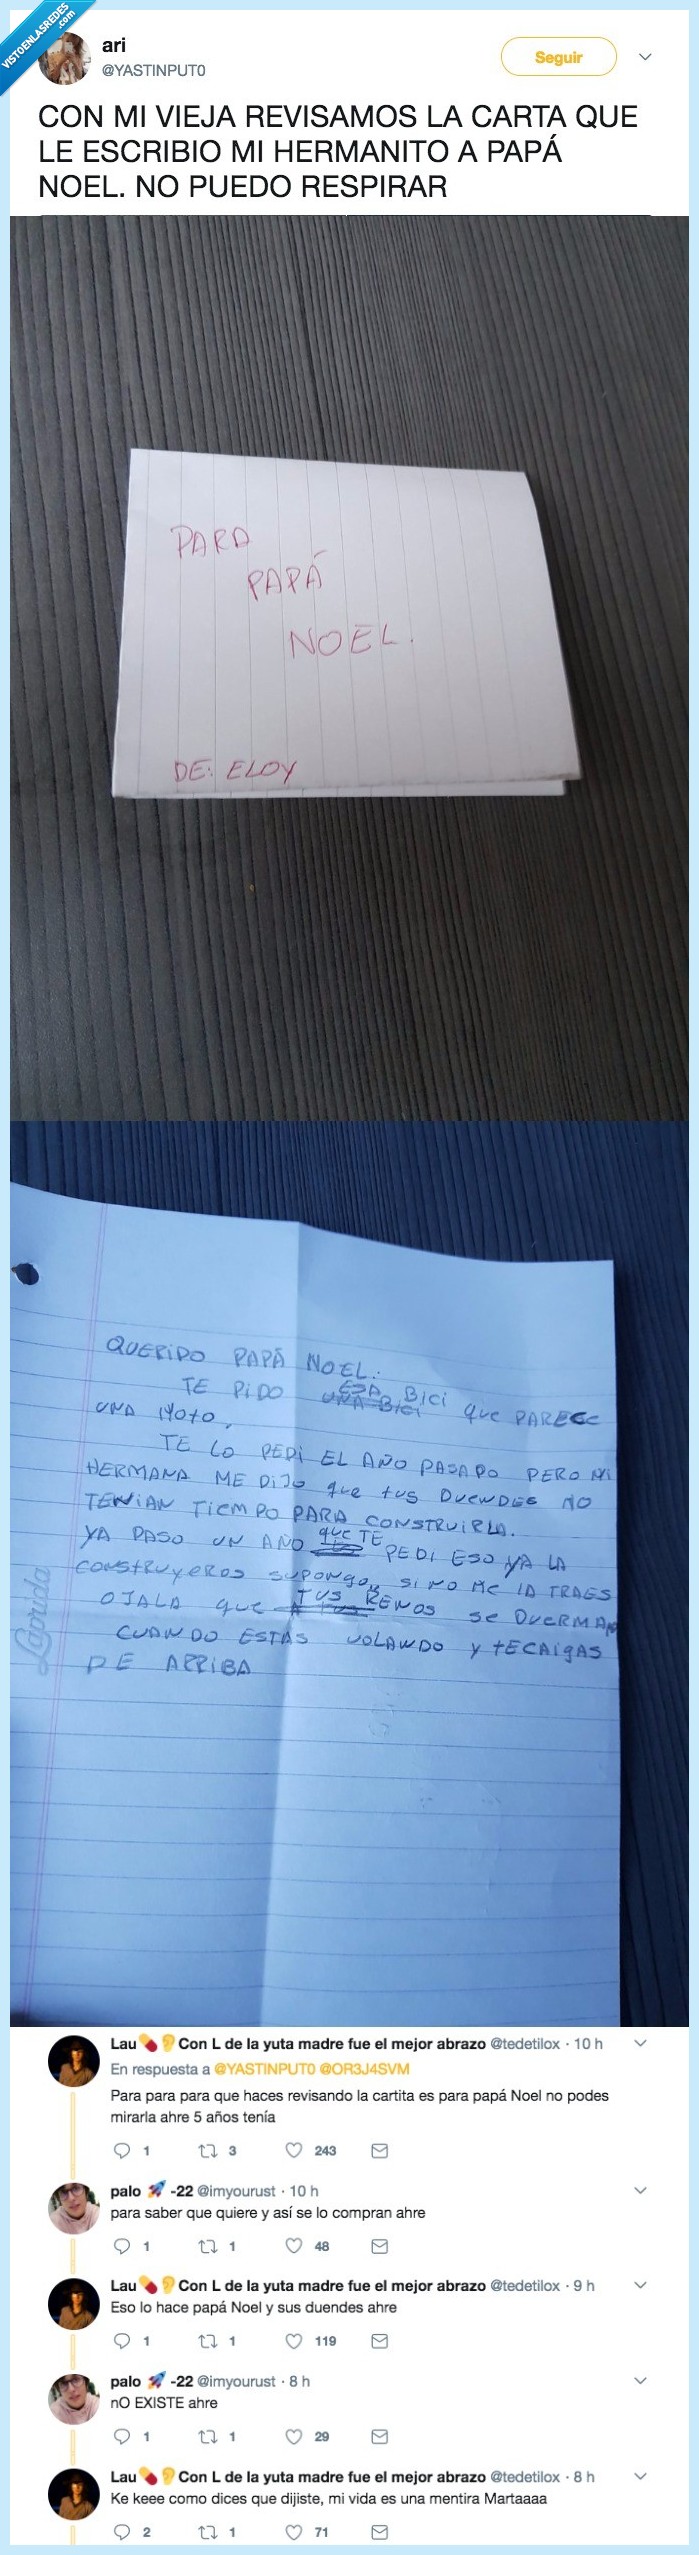 VISTOENLASREDES
.com
ari
@YASTINPUT0
Seguir
CON MI VIEJA REVISAMOS LA CARTA QUE
LE ESCRIBIO MI HERMANITO A PAPÁ
NOEL. NO PUEDO RESPIRAR
PARA
PAPÁ
NOEL.
DE: ELOY
QUERIDO PAPÁ NOEL:
TE PIDO UNA BICI ESA BICI QUE PARECE
UNA MOTO.
TE LO PEDI EL AÑO PASADO PERO MI
HERMANA ME DIJO QUE TUS DUENDES NO
TENIAN TIEMPO PARA CONSTRUIRLA.
YA PASO UN AÑO QUE TE PEDI ESO YA LA
CONSTRUYERON SUPONGO, SI NO ME LA TRAES
OJALA QUE TUS RENOS SE DUERMAN
CUANDO ESTAS VOLANDO Y TECAIGAS
DE ARRIBA
Laprida
Lau 💊👂Con L de la yuta madre fue el mejor abrazo @tedetilox · 10 h
En respuesta a @YASTINPUT0 @OR3J4SVM
Para para para que haces revisando la cartita es para papá Noel no podes
mirarla ahre 5 años tenía
1 3 243
palo 🚀 -22 @imyourust · 10 h
para saber que quiere y así se lo compran ahre
1 1 48
Lau 💊👂Con L de la yuta madre fue el mejor abrazo @tedetilox · 9 h
Eso lo hace papá Noel y sus duendes ahre
1 1 119
palo 🚀 -22 @imyourust · 8 h
nO EXISTE ahre
1 1 29
Lau 💊👂Con L de la yuta madre fue el mejor abrazo @tedetilox · 8 h
Ke keee como dices que dijiste, mi vida es una mentira Martaaaa
2 1 71